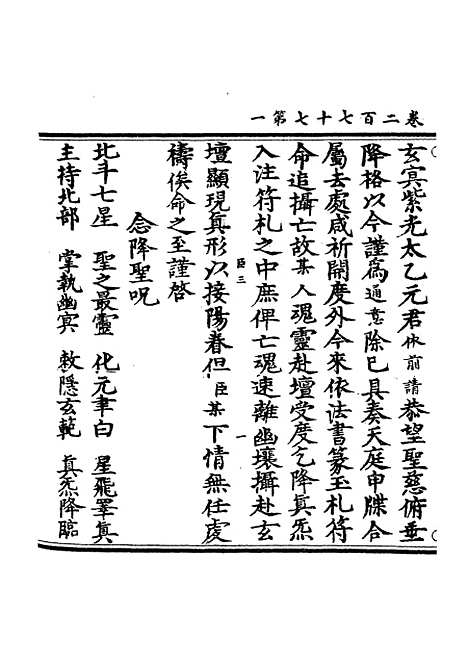 卷二百七十七第一
玄冥紫光太乙元君依前請恭望聖慈俯垂
降格以今謹為通意除已具奏天庭申牒合
屬去處咸祈開度外今來依法書篆玉札符
命追攝亡故某人魂靈赴壇受度乞降真炁
入注符札之中庶俾亡魂速離幽壤攝赴玄
臣三
一
壇顯現真形以接陽春但臣某下情無任虔
禱俟命之至謹啓
念降聖呪
北斗七星 聖之最靈 化元聿白 星飛罩真
主持北部 掌執幽冥 敕隱玄範 真炁降臨